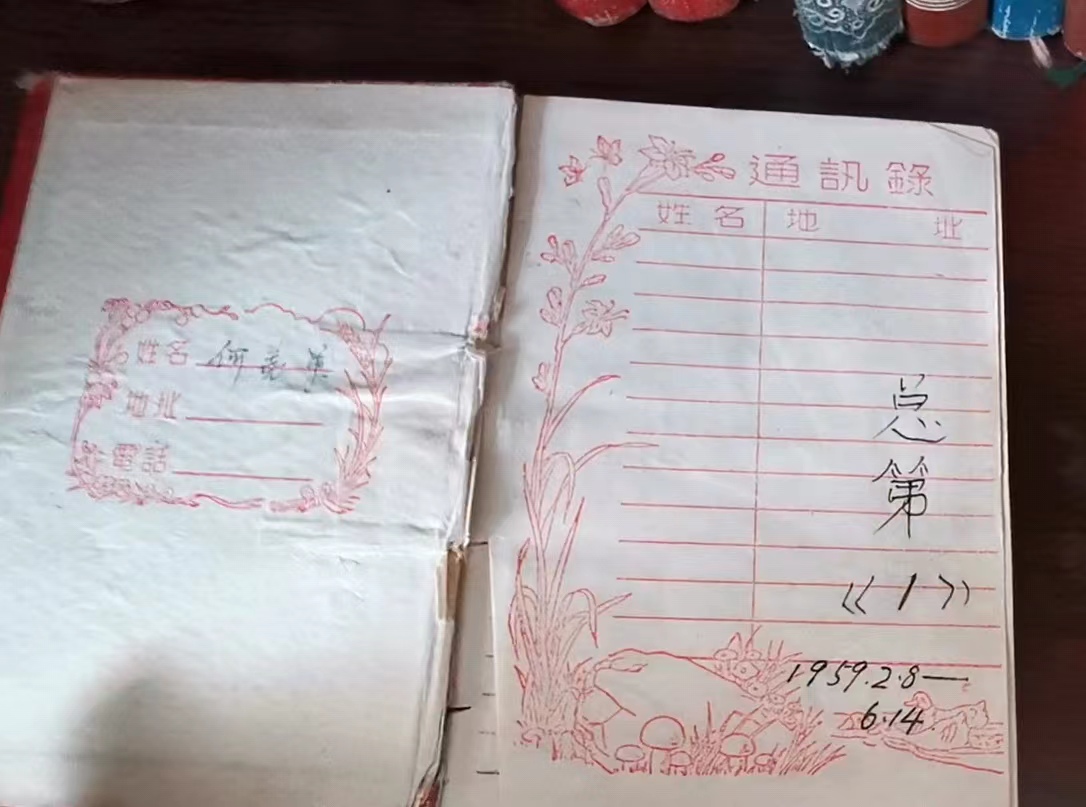 姓名 何
地址
電話
通訊錄
姓名 地址
总
第
《1》
1959.2.8—
6.14